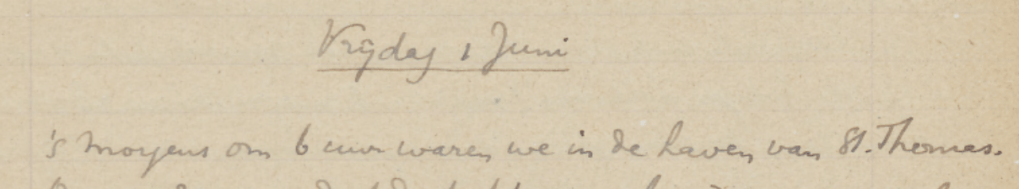 Vrijdag 1 Juni
's morgens om 6 uur waren we in de haven van St. Thomas.